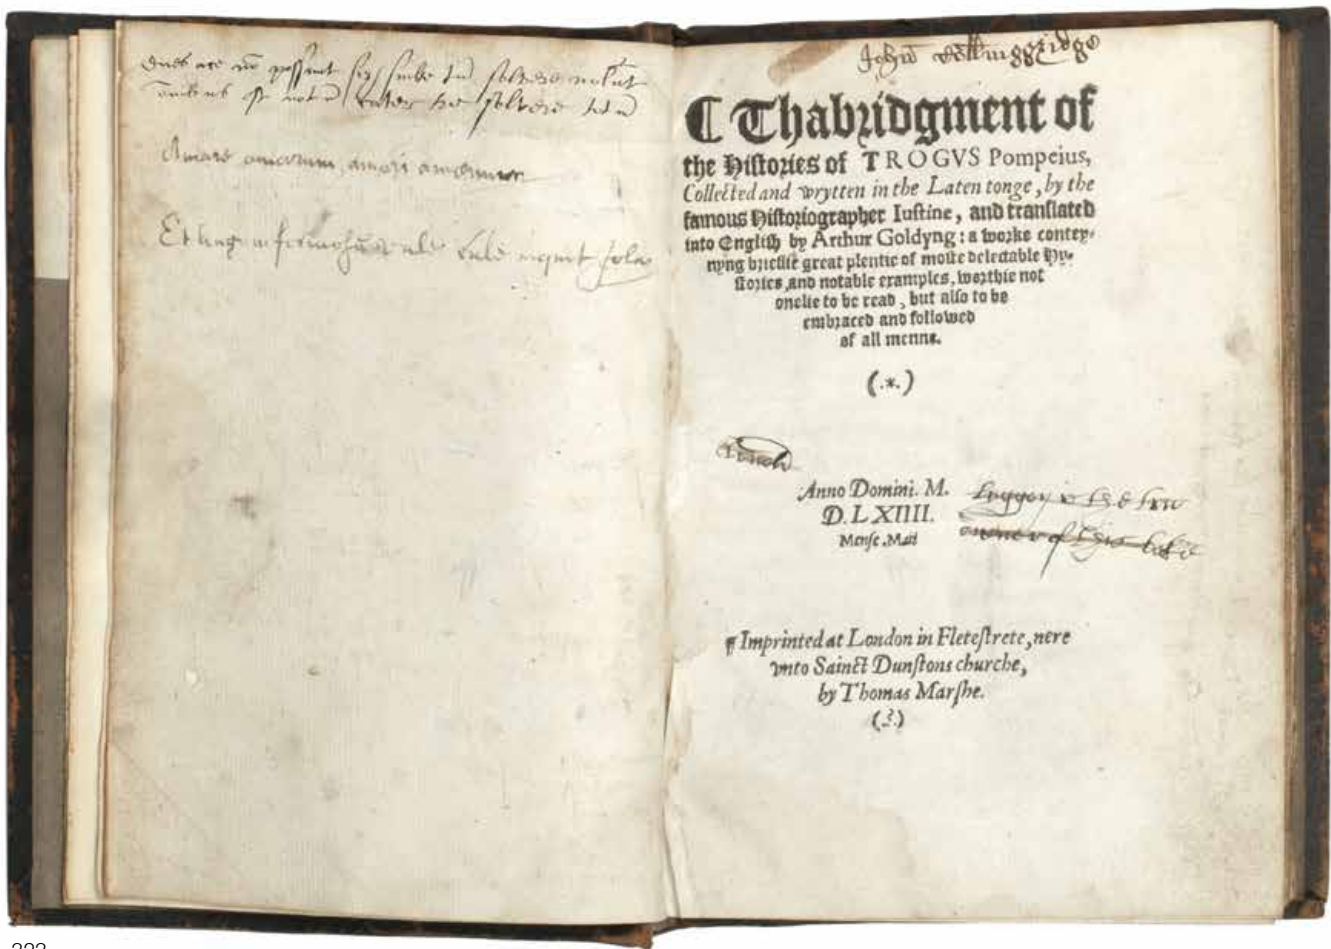 possunt
Amare amarum, amari amarum
Et longum formose vale vale inquit Iola
John
¶ Thabridgment of
the Histories of TROGVS Pompeius,
Collected and wrytten in the Laten tonge, by the
famous Historiographer Iustine, and translated
into English by Arthur Goldyng: a worke contey-
nyng brieflie great plentie of moste delectable Hy-
stories, and notable examples, worthie not
onelie to be read, but also to be
embraced and followed
of all menne.
(.*.)
Anno Domini. M.
D. LXIIII.
Mense Maii
is the trw
owner of this boke
¶ Imprinted at London in Fletestrete, nere
vnto Sainct Dunstons churche,
by Thomas Marshe.